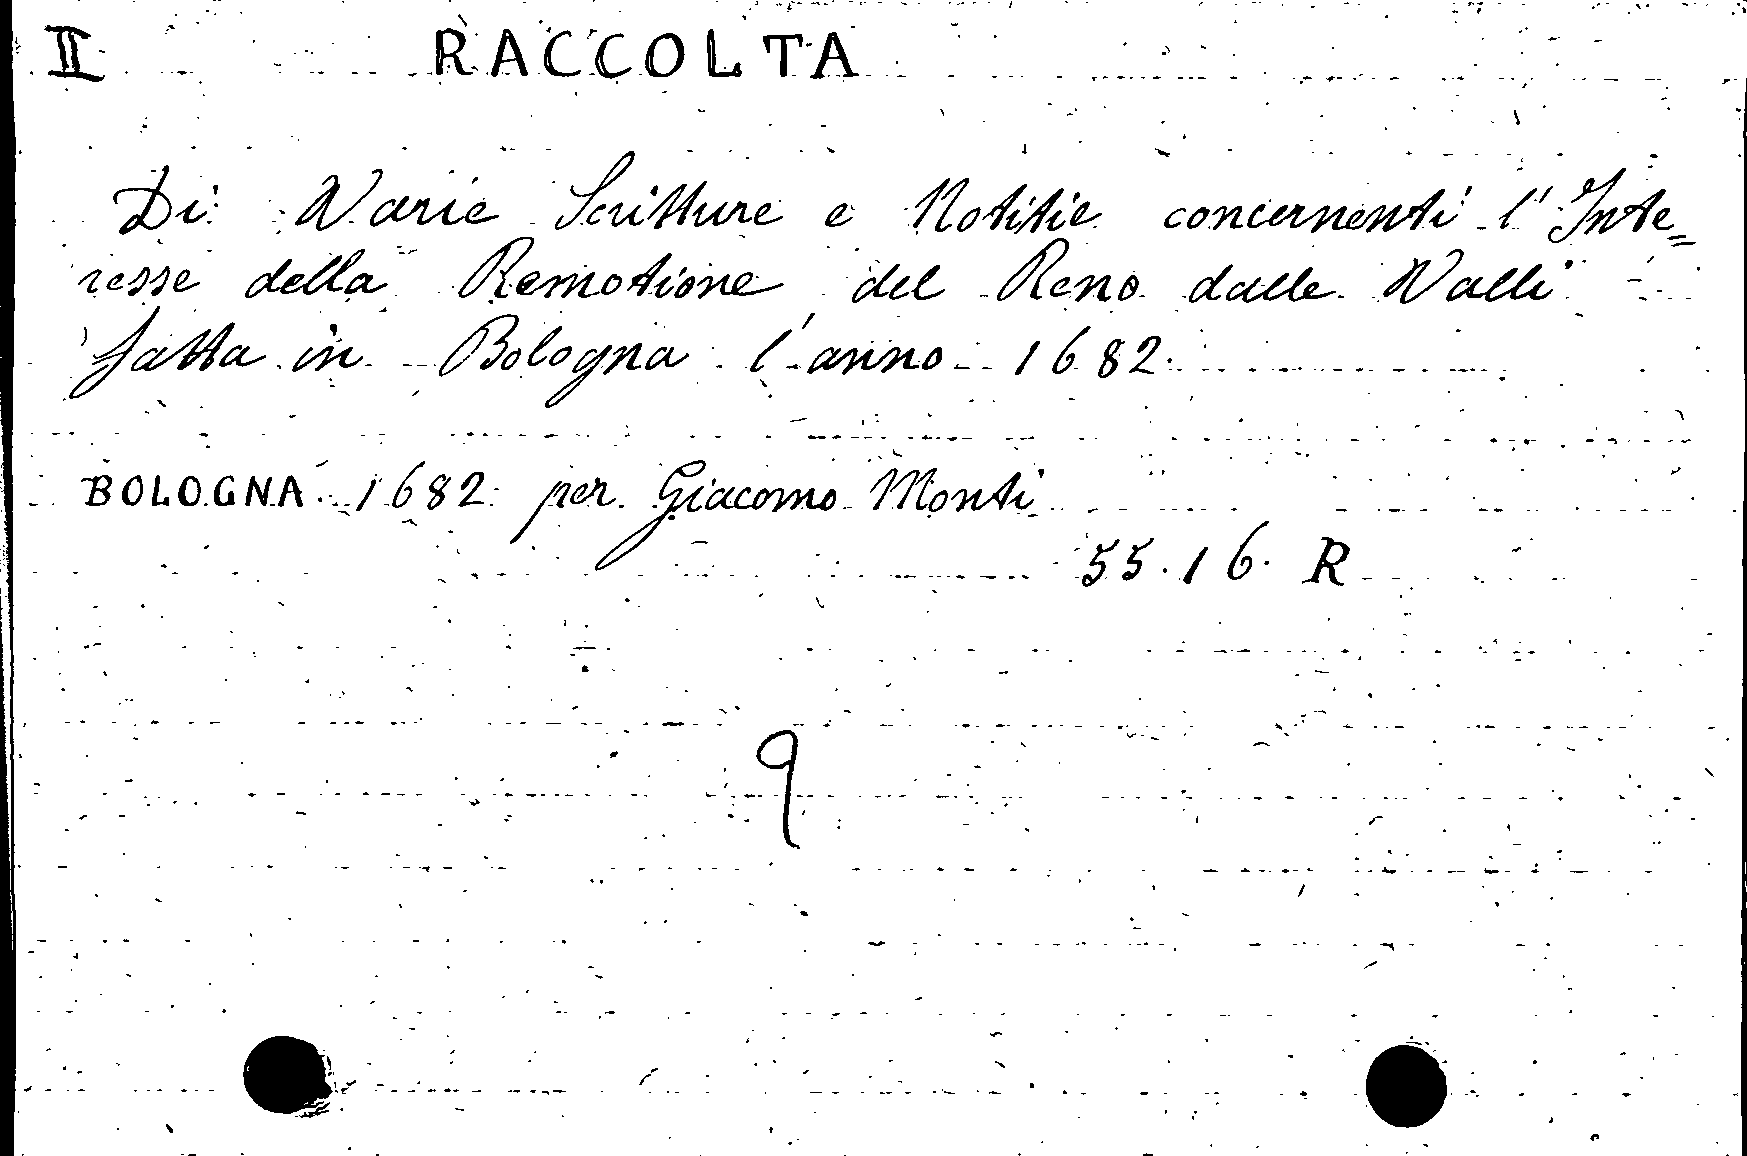 II RACCOLTA
Di Varie Scritture e Notitie concernenti l'Inte=
resse della Remotione del Reno dalle Valli
fatta in Bologna l'anno 1682.
BOLOGNA 1682 per Giacomo Monti
55.16. R
9